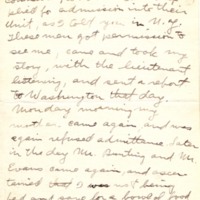 also to submission into their
Unit, as I told you in N.Y.
These men got permission to
see me, came and took my
story, with the lieutenant
listening, and sent a report
to Washington that day.
Monday morning my
mother came again and was
again refused admittance. Later
in the day Mr. Bunting and Mr.
Evans came again, and ascer-
tained that I was not being
fed and some for a loaf of food